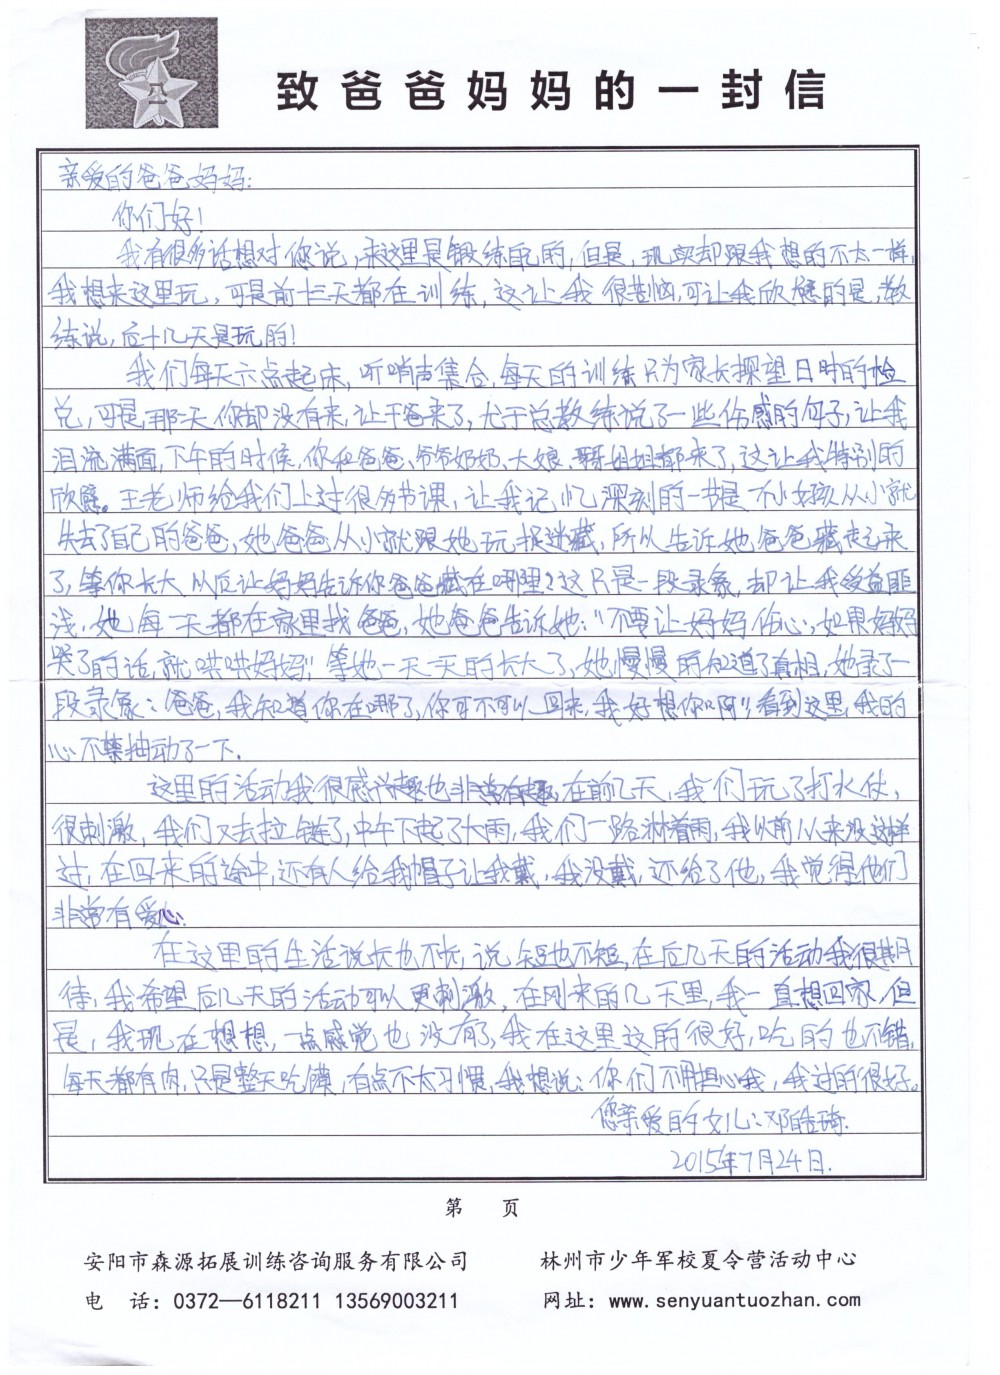 致爸爸妈妈的一封信
亲爱的爸爸妈妈:
你们好!
我有很多话想对你说,来这里是锻练自己的,但是,现实却跟我想的不太一样,
我想来这里玩,可是前十三天都在训练,这让我很苦恼,可让我欣慰的是,教
练说,后十几天是玩的!
我们每天六点起床,听哨声集合,每天的训练只为家长探望日时的检
兑,可是那天你却没有来,让干爸来了,尤于总教练说了一些伤感的句子,让我
泪流满面,下午的时候,你和爸爸、爷爷奶奶、大娘、姐姐都来了,这让我特别的
欣慰。王老师给我们上过很多节课,让我记忆深刻的一节是一个小女孩从小就
失去了自己的爸爸,她爸爸从小就跟她玩捉迷藏,所以告诉她爸爸藏起来
了,等你长大以后让妈妈告诉你爸爸藏在哪里?这只是一段录象,却让我受益匪
浅,她每一天都在家里找爸爸,她爸爸告诉她:"不要让妈妈伤心,如果妈妈
哭了的话,就哄哄妈妈!"等她一天一天的长大了,她慢慢的知道了真相,她录了一
段录象:爸爸,我知道你在哪了,你可不可以回来,我好想你啊!看到这里,我的
心不禁抽动了一下.
这里的活动我很感兴趣也非常有趣,在前几天,我们玩了打水仗,
很刺激,我们又去拉链了,中午下起了大雨,我们一路淋着雨,我以前从来没这样
过,在回来的途中,还有人给我帽子让我戴,我没戴,还给了他,我觉得他们
非常有爱心.
在这里的生活说长也不长,说短也不短,在后几天的活动我很期
待,我希望后几天的活动可以更刺激,在刚来的几天里,我一直想回家,但
是,我现在想想,一点感觉也没有了,我在这里过的很好,吃的也不错,
每天都有肉,只是整天吃馍,有点不太习惯,我想说:你们不用担心我,我过的很好。
您亲爱的女儿:邓皓琦.
2015年7月24日.
第 页
安阳市森源拓展训练咨询服务有限公司 林州市少年军校夏令营活动中心
电 话:0372—6118211 13569003211 网址:www.senyuantuozhan.com